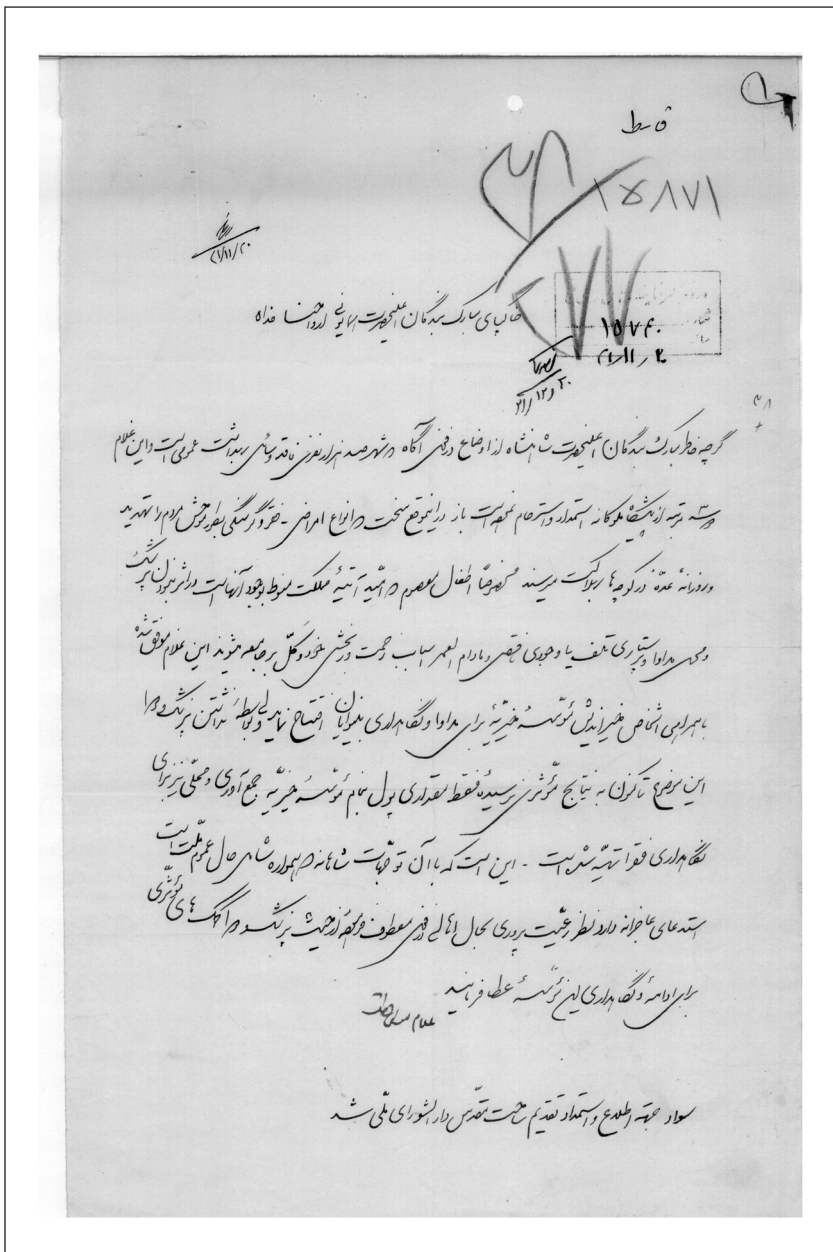 ۱۵۸۷۱
۲۱/۱۱/۲۰
خاکپای مبارک بندگان اعلیحضرت همایونی ارواحنا فداه
۱۵۷۴۰
۲۱/۱۱/۲۰
۲۱/۱۲/۲۰
گرچه خاطر مبارک بندگان اعلیحضرت شاهنشاه از اوضاع آگاه شهر صد هزار نفری فاقد وسائل بهداشت عمومی است و این غلام
مرتبه از پیشگاه ملوکانه استمداد و استرحام نموده است باز در این موقع سخت انواع امراض - فقر و گرسنگی بطور موحش مردم را تهدید
و روزانه عدّه در کوچه‌ها بهلاکت میرسند مخصوصاً اطفال معصوم امّید آتیهٔ مملکت منوط بوجود آنها است در اثر نبودن پزشک
و محل مداوا و پرستاری تلف یا وجودی ناقص و مادام العمر اسباب زحمت و بدبختی خود و کَلّ بر جامعه میشوند این غلام موفق شده
با همراهی اشخاص خیراندیش مؤسسهٔ خیریّهٔ برای مداوا و نگاهداری بینوایان افتتاح نماید ولی بواسطهٔ نداشتن پزشک و دارا
این موضوع تاکنون به نتایج مؤثری نرسیده فقط مقداری پول بنام مؤسسهٔ خیریّه جمع آوری و محلّی نیز برای
نگاهداری فقرا تهیّه شده است - این است که با آن توجّهات شاهانه همواره شامل حال عموم ملّت است
استدعای عاجزانه دارد نظر رعیّت پروری بحال اهالی معطوف فرموده از حیث پزشک و کمک های مؤثری
برای ادامه و نگاهداری این مؤسسهٔ عطا فرمایند
سواد جهة اطلاع و استمداد تقدیم ساحت مقدّس دارالشورای ملّی شد